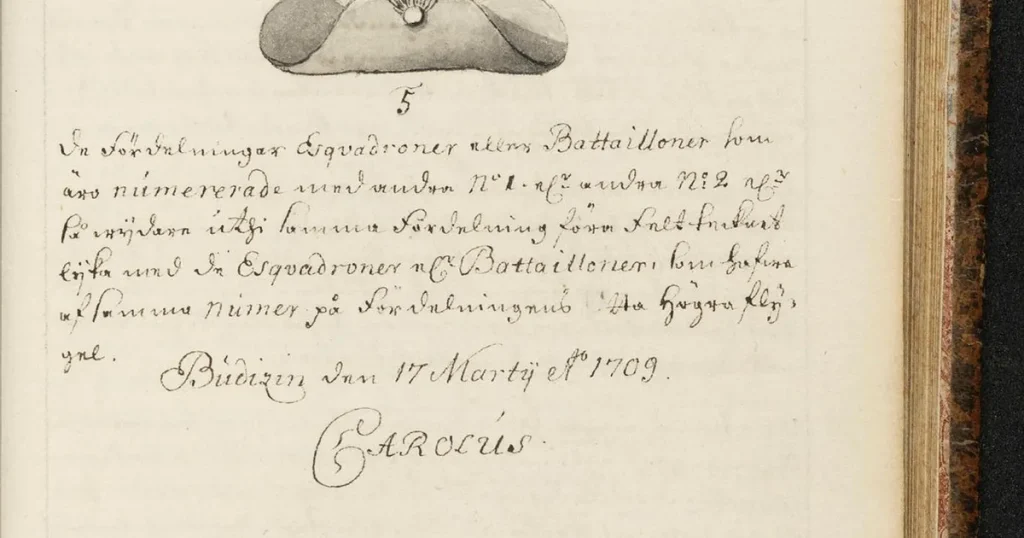 5
de Fördelningar Esqvadroner eller Battailloner som
äro númererade med andra No 1. elr andra No 2 elr
så wÿdare úthi samma Fördelning föra Felt tecknet
lÿka med de Esqvadroner elr Battailloner, som hafwa
af samma númer på Fördelningens 1sta Högra flÿ-
gel.
Búdizin den 17 Martÿ Ao 1709.
CAROLÚS.